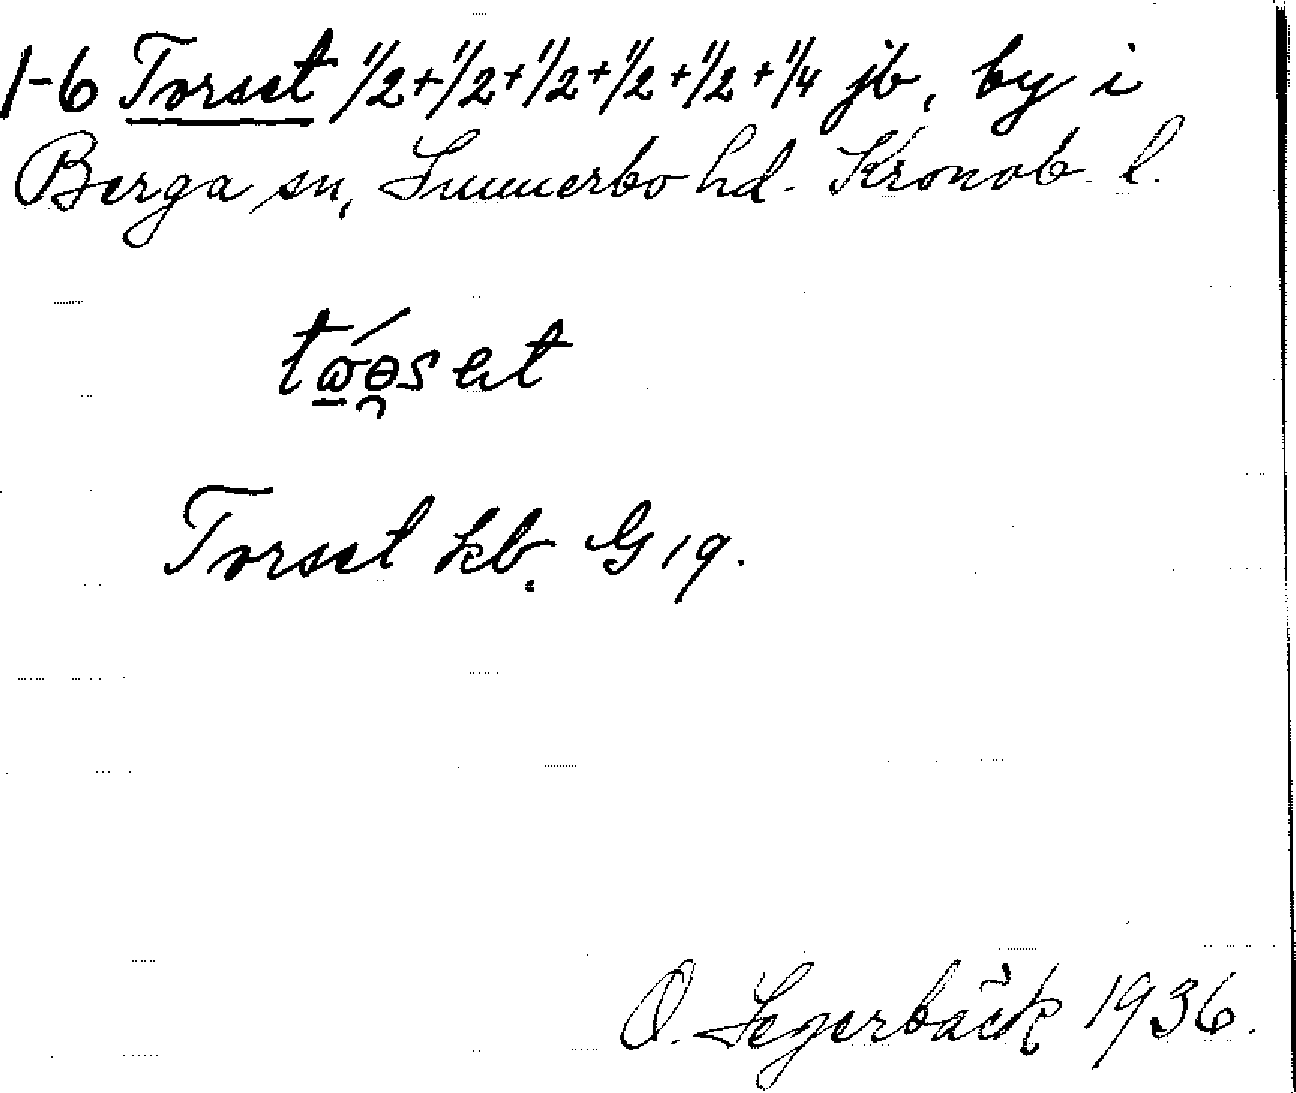 1-6 Torset 1/2+1/2+1/2+1/2+1/2+1/4 jb, by i
Berga sn, Sunnerbo hd. Kronob. l.
Torset kb. G 19.
O. Segerbäck 1936.